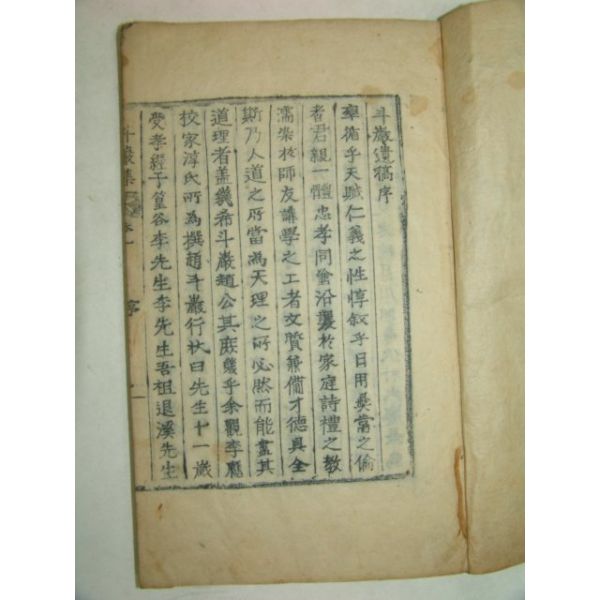 斗巖遺稿序
率循乎天賦仁義之性惇叙乎日用彛常之倫
者君親一體忠孝同奮沿襲於家庭詩禮之教
濡染於師友講學之工者文質兼備才德具全
斯乃人道之所當爲天理之所必然而能盡其
道理者盖幾希斗巖趙公其庶幾乎余觀李應
校家淳氏所爲撰趙斗巖行狀曰先生十一歲
受孝經于篁谷李先生李先生吾祖退溪先生
斗巖集 卷一 序 一